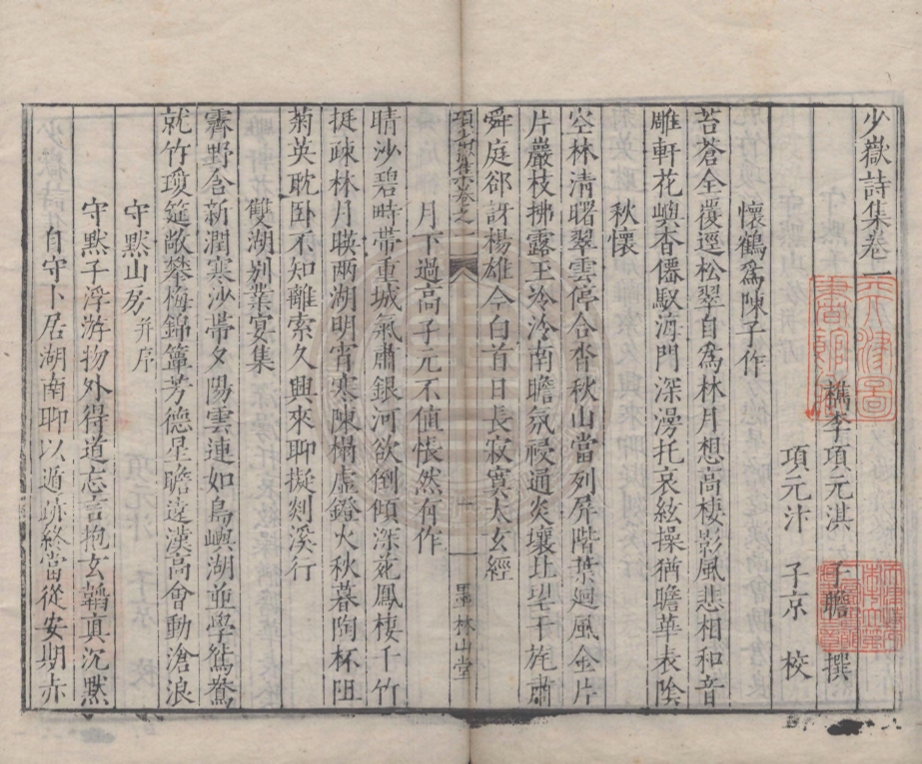 少嶽詩集卷一
檇李項元淇 子瞻 撰
項元汴 子京 校
懷鶴為陳子作
苔蒼全覆逕松翠自為林月想高棲影風悲相和音
雕軒花嶼香僊馭海門深謾托哀絃操猶瞻華表陰
秋懷
空林清曙翠雲停合沓秋山當列屏階葉迴風金片
片巖枝拂露玉泠泠南瞻氛祲通炎壤北望干旄肅
舜庭郤訝楊雄今白首日長寂寞太玄經
項少嶽集卷之一
一
墨林山堂
月下過高子元不值悵然有作
晴沙碧時帶重城氣肅銀河欲倒傾深苑鳳棲千竹
挺疎林月暎兩湖明宵寒陳榻虛鐙火秋暮陶杯阻
菊英耽卧不知離索久興來聊擬剡溪行
雙湖別業宴集
霽野含新潤寒沙帶夕陽雲連如島嶼湖並學鴛鴦
就竹瓊筵敞攀梅錦簟芳德星瞻遠漢高會動滄浪
守默山房并序
守默子浮游物外得道忘言抱玄韜真沉默
自守卜居湖南聊以遁跡終當從安期赤